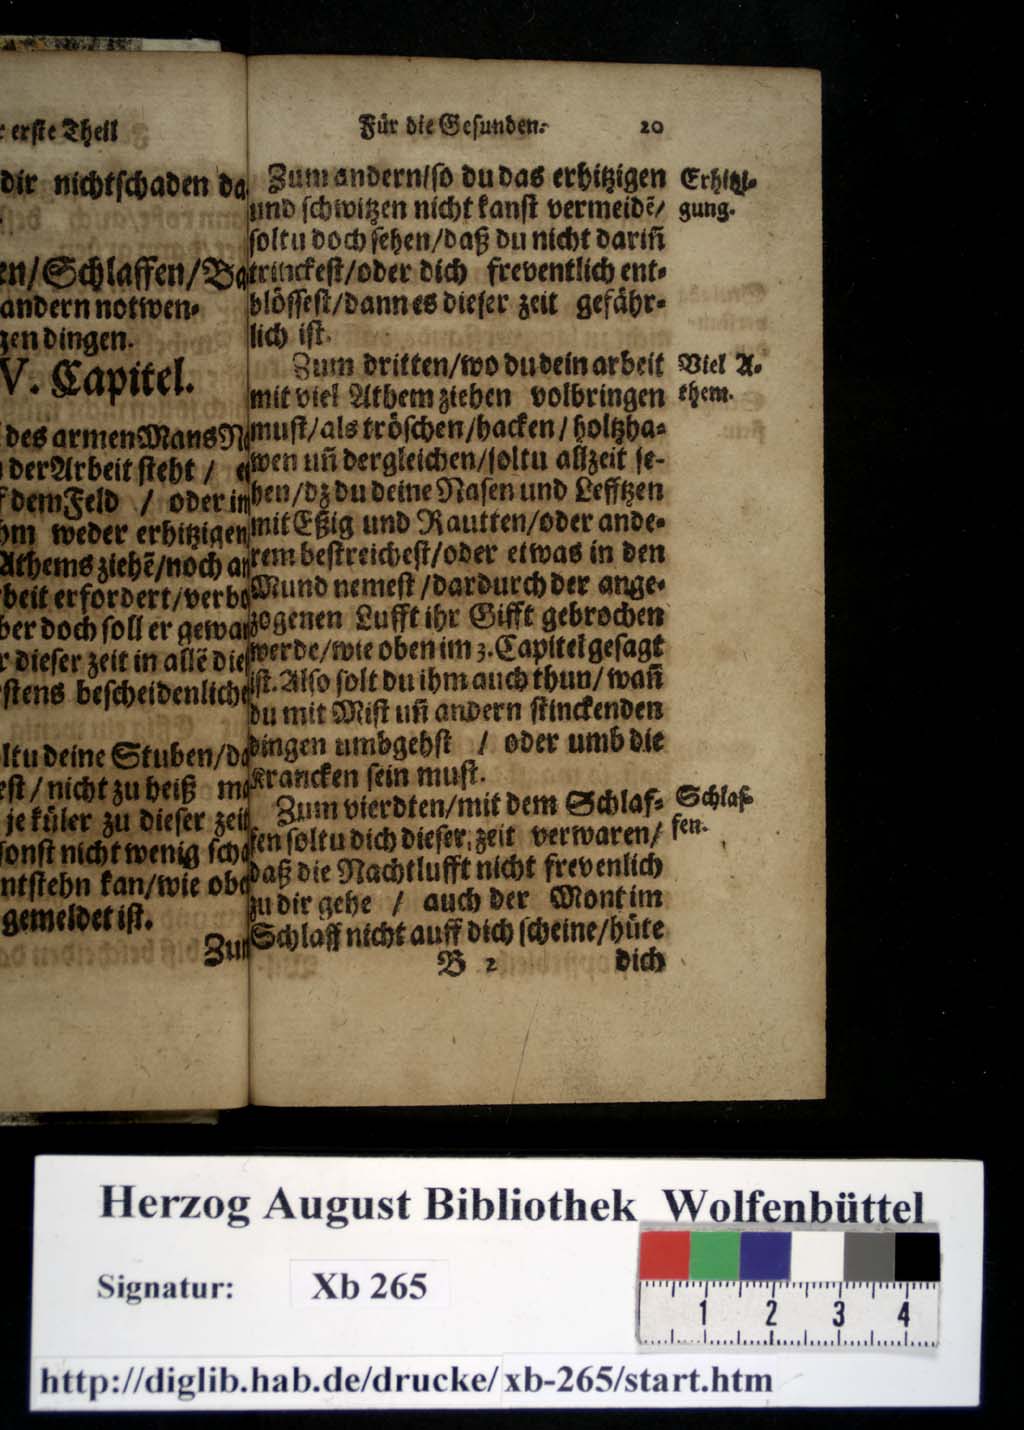 erste Theil
dir nicht schaden da
en/Schlaffen/Ba
andern notwen-
gen dingen.
V. Capitel.
des armen Mans N
der Arbeit steht /
dem Feld / oder in
weder erhitzigen
Athems ziehẽ/noch
erfordert/verbo
doch soll er gewar
dieser zeit in allẽ die
bescheidenliche
deine Stuben/da
/ nicht zu heiß
je küler zu dieser zeit
sonst nicht wenig scha
entstehn kan/wie obe
gemeldet ist.
Zum
Für die Gesunden. 20
Zum andern/so du das erhitzigen
und schwitzen nicht kanst vermeidẽ/
soltu doch sehen/daß du nicht dariñ
trinckest/oder dich freventlich ent-
blössest/dann es dieser zeit gefähr-
lich ist.
Erhitzi-
gung.
Zum dritten/wo du dein arbeit
mit viel Athem ziehen volbringen
must/als tröschen/hacken/holtzha-
wen uñ dergleichen/soltu allzeit se-
hen/dz du deine Nasen und Lefftzen
mit Eßig und Rautten/oder ande-
rem bestreichest/oder etwas in den
Mund nemest/dardurch der ange-
zogenen Lufft ihr Gifft gebrochen
werde/wie oben im 3. Capitel gesagt
ist. Also solt du ihm auch thun/wañ
du mit Mist uñ andern stinckenden
dingen umbgehst / oder umb die
Krancken sein must.
Viel A-
them.
Zum vierdten/mit dem Schlaf-
fen soltu dich dieser zeit verwaren/
daß die Nachtlufft nicht frevenlich
zu dir gehe / auch der Mont im
Schlaff nicht auff dich scheine/hüte
Schlaf-
fen.
B 2 dich
Herzog August Bibliothek Wolfenbüttel
Signatur: Xb 265
1 2 3 4
http://diglib.hab.de/drucke/xb-265/start.htm